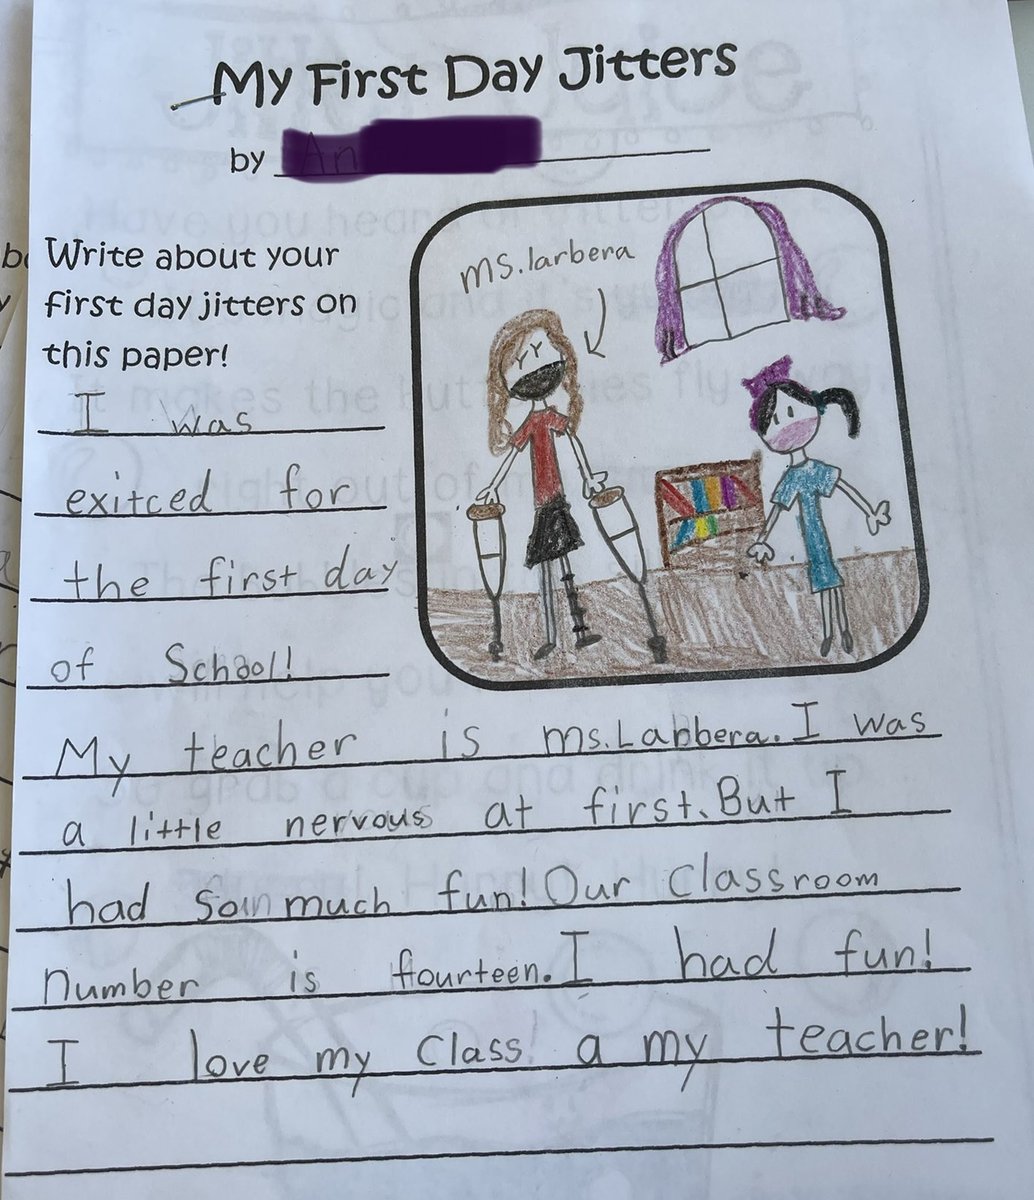 My First Day Jitters
by An
Write about your
first day jitters on
this paper!
ms.larbera
I was
exitced for
the first day
of School!
My teacher is ms.Labbera. I was
a little nervous at first. But I
had so much fun! Our Classroom
number is fourteen. I had fun!
I love my Class a my teacher!